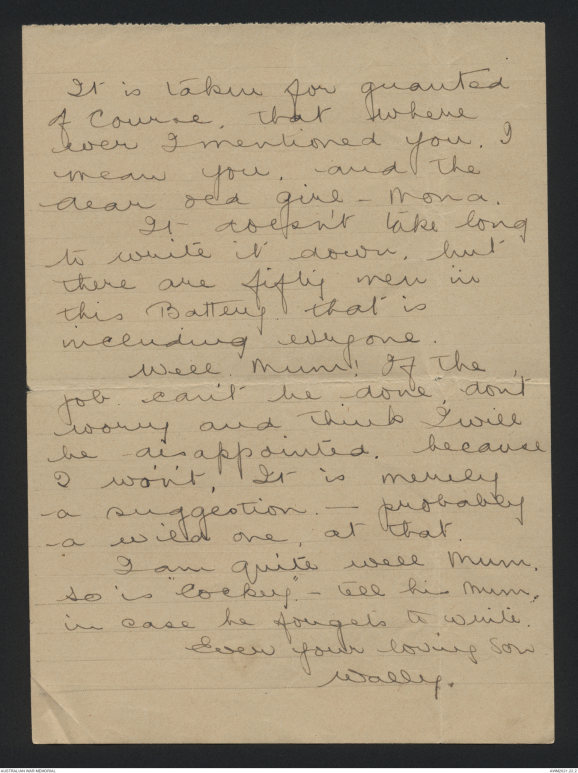 It is taken for guanted
of Course, that where
ever I mentioned you, I
mean you, and the
dear old girl - Mona.
It doesn't take long
to write it down, but
there are fifty men in
this Battery that is
including everyone.
Well Mum! If the
job can't be done, don't
worry and think I will
be disappointed, because
I won't, It is merely
a suggestion - probably
a wild one, at that.
I am quite well Mum,
so is "Cockey" - tell his Mum,
in case he forgets to write.
Ever your loving Son
Wally.
AUSTRALIAN WAR MEMORIAL